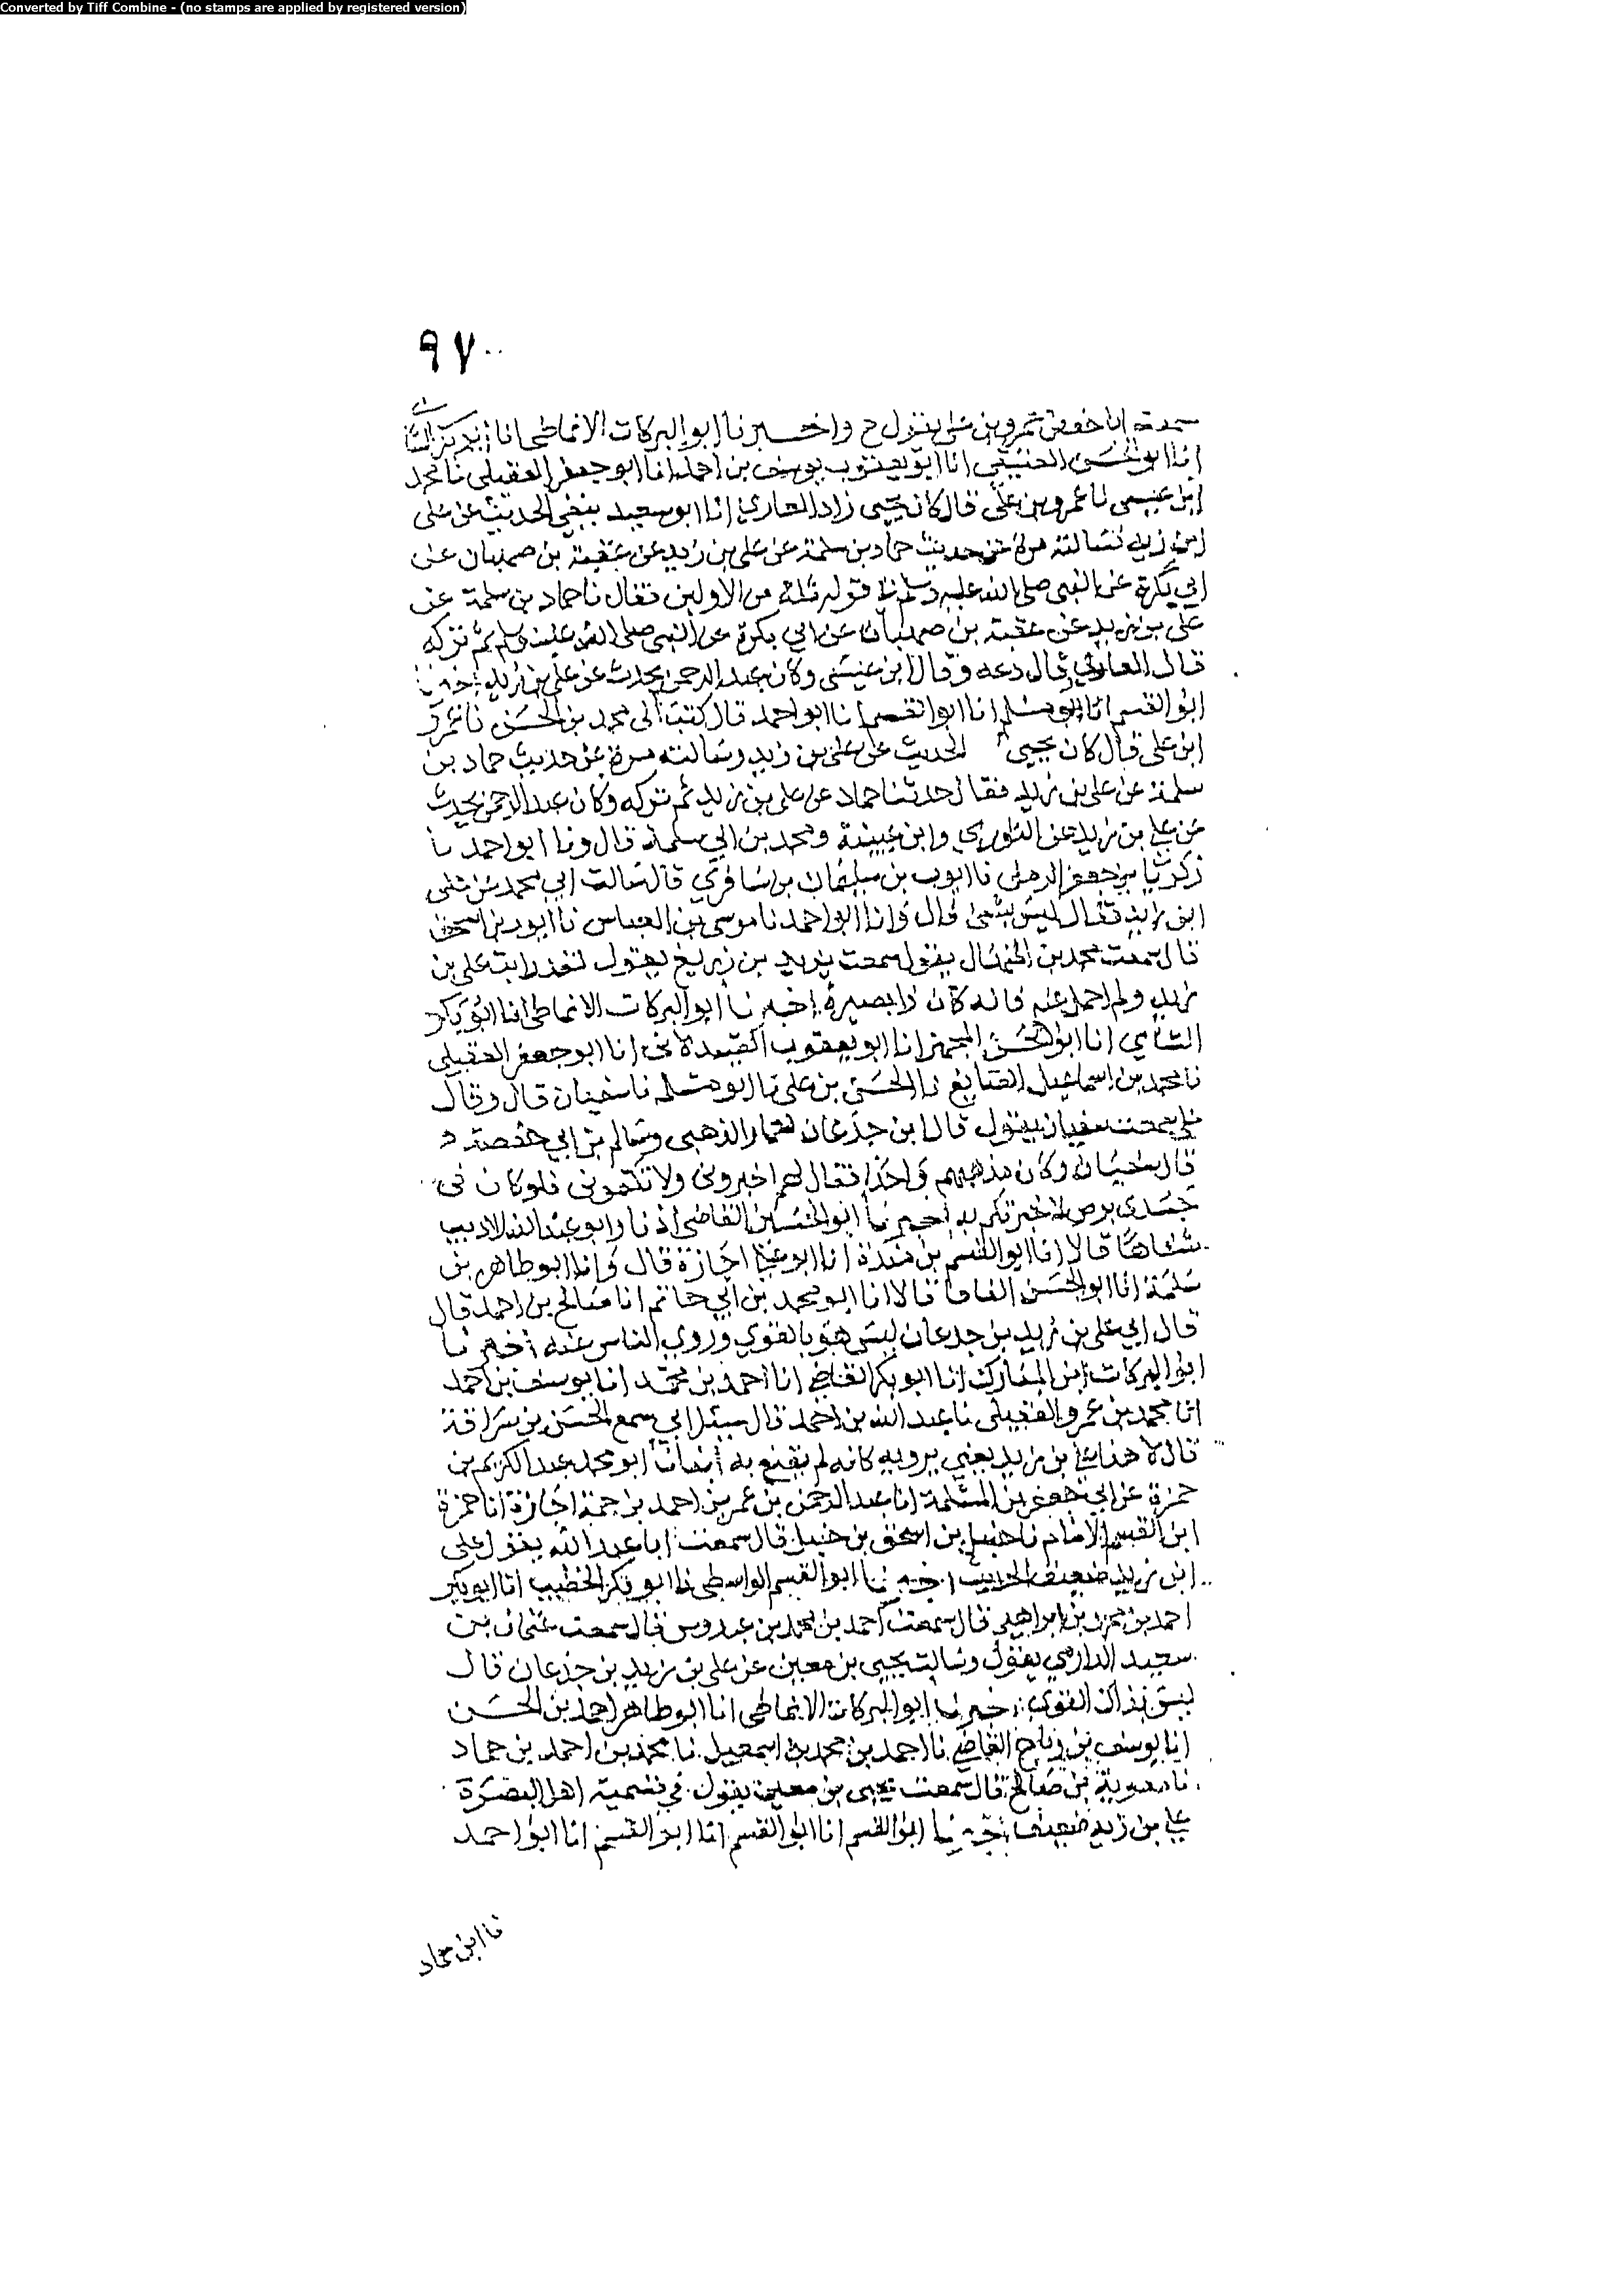 Converted by Tiff Combine - (no stamps are applied by registered version)
٩٧
سمعت ابا حفص عمرو بن علي يقول ح واخبرنا ابو البركات الانماطي انا ابو بكر الشامي
انا ابو الحسن العتيقي انا ابو يعقوب يوسف بن احمد انا ابو جعفر العقيلي نا محمد
ابن عيسى نا عمرو بن علي قال كان يحيى زاد انا ابو سعيد يتقي الحديث عن علي
ابن زيد فسالته مرة عن حديث حماد بن سلمة عن علي بن زيد عن عقبة بن صهبان عن
ابي بكرة عن النبي صلى الله عليه وسلم في قوله ثلة من الاولين فقال نا حماد بن سلمة عن
علي بن زيد عن عقبة بن صهبان عن ابي بكرة عن النبي صلى الله عليه وسلم ثم تركه
قال دعه وقال ابن عيسى وكان عبد الرحمن يحدث عن علي بن زيد اخبرنا
ابو القسم انا ابو القسم انا ابو احمد قال كتب الي محمد بن الحسن نا عمرو
ابن علي قال كان يحيى الحديث عن علي بن زيد وسالته مرة عن حديث حماد بن
سلمة عن علي بن زيد فقال حدثنا حماد عن علي بن زيد ثم تركه وكان عبد الرحمن يحدث
عن علي بن زيد عن الثوري وابن عيينة وحماد بن سلمة قال ونا ابو احمد نا
زكريا بن جعفر الرملي نا ايوب بن سليمان بن سافري قال سالت ابي محمد عن علي
ابن زيد فقال ليس بشي قال وانا ابو احمد نا موسى بن العباس نا ابو بن اسحق
قال سمعت محمد بن المنهال يقول سمعت يزيد بن زريع يقول لقد رايت علي بن
زيد ولم احمل عنه فانه كان رابصيرة اخبرنا ابو البركات الانماطي انا ابو بكر
الشامي انا ابو الحسن المجهز انا ابو يعقوب الصيدلاني انا ابو جعفر العقيلي
نا محمد بن اسماعيل الصايغ نا الحسن بن علي نا ابو سلمة نا سفيان قال وقال
علي سمعت سفيان يقول قال ابن جدعان لعمار الذهبي وسالم بن ابي حفصة
قال سفيان وكان مذهبهم واحدا فقال لهم اخبروني ولا تكتموني فلو كان في
جسدي برص لاخبرتكم به اخبرنا ابو الحسين القاضي اذنا وابو عبد الله الاديب
شفاها قالا انا ابو القسم بن مندة انا ابو علي اجازة قال وانا ابو طاهر بن
سلمة انا ابو الحسن الفافا قالا انا ابو محمد بن ابي حاتم انا صالح بن احمد قال
قال ابي علي بن زيد بن جدعان ليس هو بالقوي وروى الناس عنه اخبرنا
ابو البركات ابن المبارك انا ابو بكر القاضي انا احمد بن محمد انا يوسف بن احمد
انا محمد بن عمرو العقيلي نا عبد الله بن احمد قال سئل ابي سمع الحسن من سراقة
قال لا هذا علي بن زيد يعني يرويه كانه لم يقنع به انبانا ابو محمد عبد الكريم بن
حمزة عن ابي جعفر بن المسلمة انا عبد الرحمن بن عمر بن احمد بن حمة اجازة انا حمزة
ابن القسم الامام نا حنبل بن اسحق بن حنبل قال سمعت ابا عبد الله يقول علي
ابن زيد ضعيف الحديث اخبرنا ابو القسم الواسطي نا ابو بكر الخطيب انا ابو بكر
احمد بن محمد بن ابراهيم قال سمعت احمد بن محمد بن عبدوس قال سمعت عثمان بن
سعيد الدارمي يقول وسالت يحيى بن معين عن علي بن زيد بن جدعان قال
ليس بذاك القوي اخبرنا ابو البركات الانماطي انا ابو طاهر احمد بن الحسن
انا يوسف بن رباح القاضي نا احمد بن محمد بن اسمعيل نا محمد بن احمد بن حماد
نا معوية بن صالح قال سمعت يحيى بن معين يقول في تسمية اهل البصرة
علي بن زيد ضعيف اخبرنا ابو القسم انا ابو القسم انا ابو القسم انا ابو احمد
نا ابن حماد